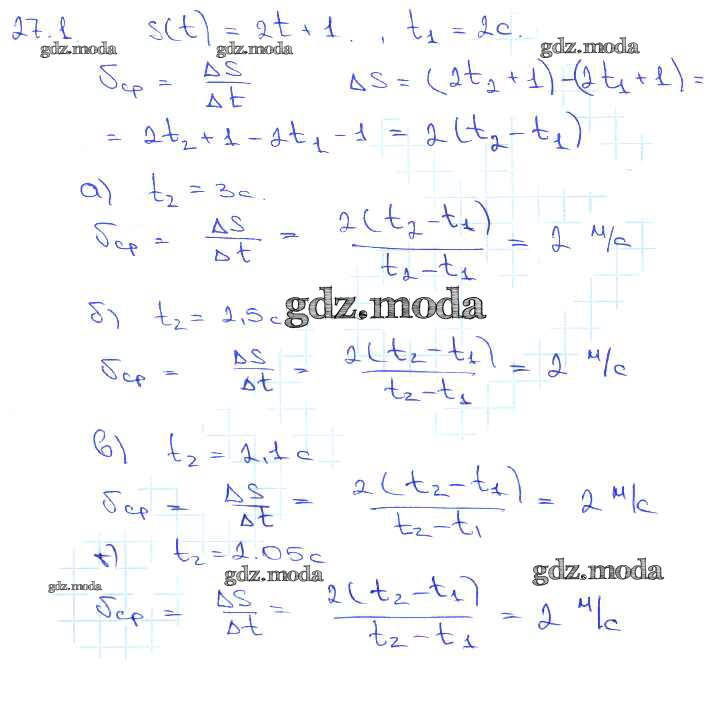 27.1. S(t) = 2t + 1. , t₁ = 2c.
gdz.moda gdz.moda gdz.moda
υср = ΔS/Δt ΔS = (2t₂ + 1) - (2t₁ + 1) =
= 2t₂ + 1 - 2t₁ - 1 = 2(t₂ - t₁)
а) t₂ = 3c.
υср = ΔS/Δt = 2(t₂ - t₁)/t₂ - t₁ = 2 м/с
б) t₂ = 2,5c gdz.moda
υср = ΔS/Δt = 2(t₂ - t₁)/t₂ - t₁ = 2 м/с
в) t₂ = 2,1c
υср = ΔS/Δt = 2(t₂ - t₁)/t₂ - t₁ = 2 м/с
г) t₂ = 2.05c
gdz.moda gdz.moda gdz.moda
υср = ΔS/Δt = 2(t₂ - t₁)/t₂ - t₁ = 2 м/с